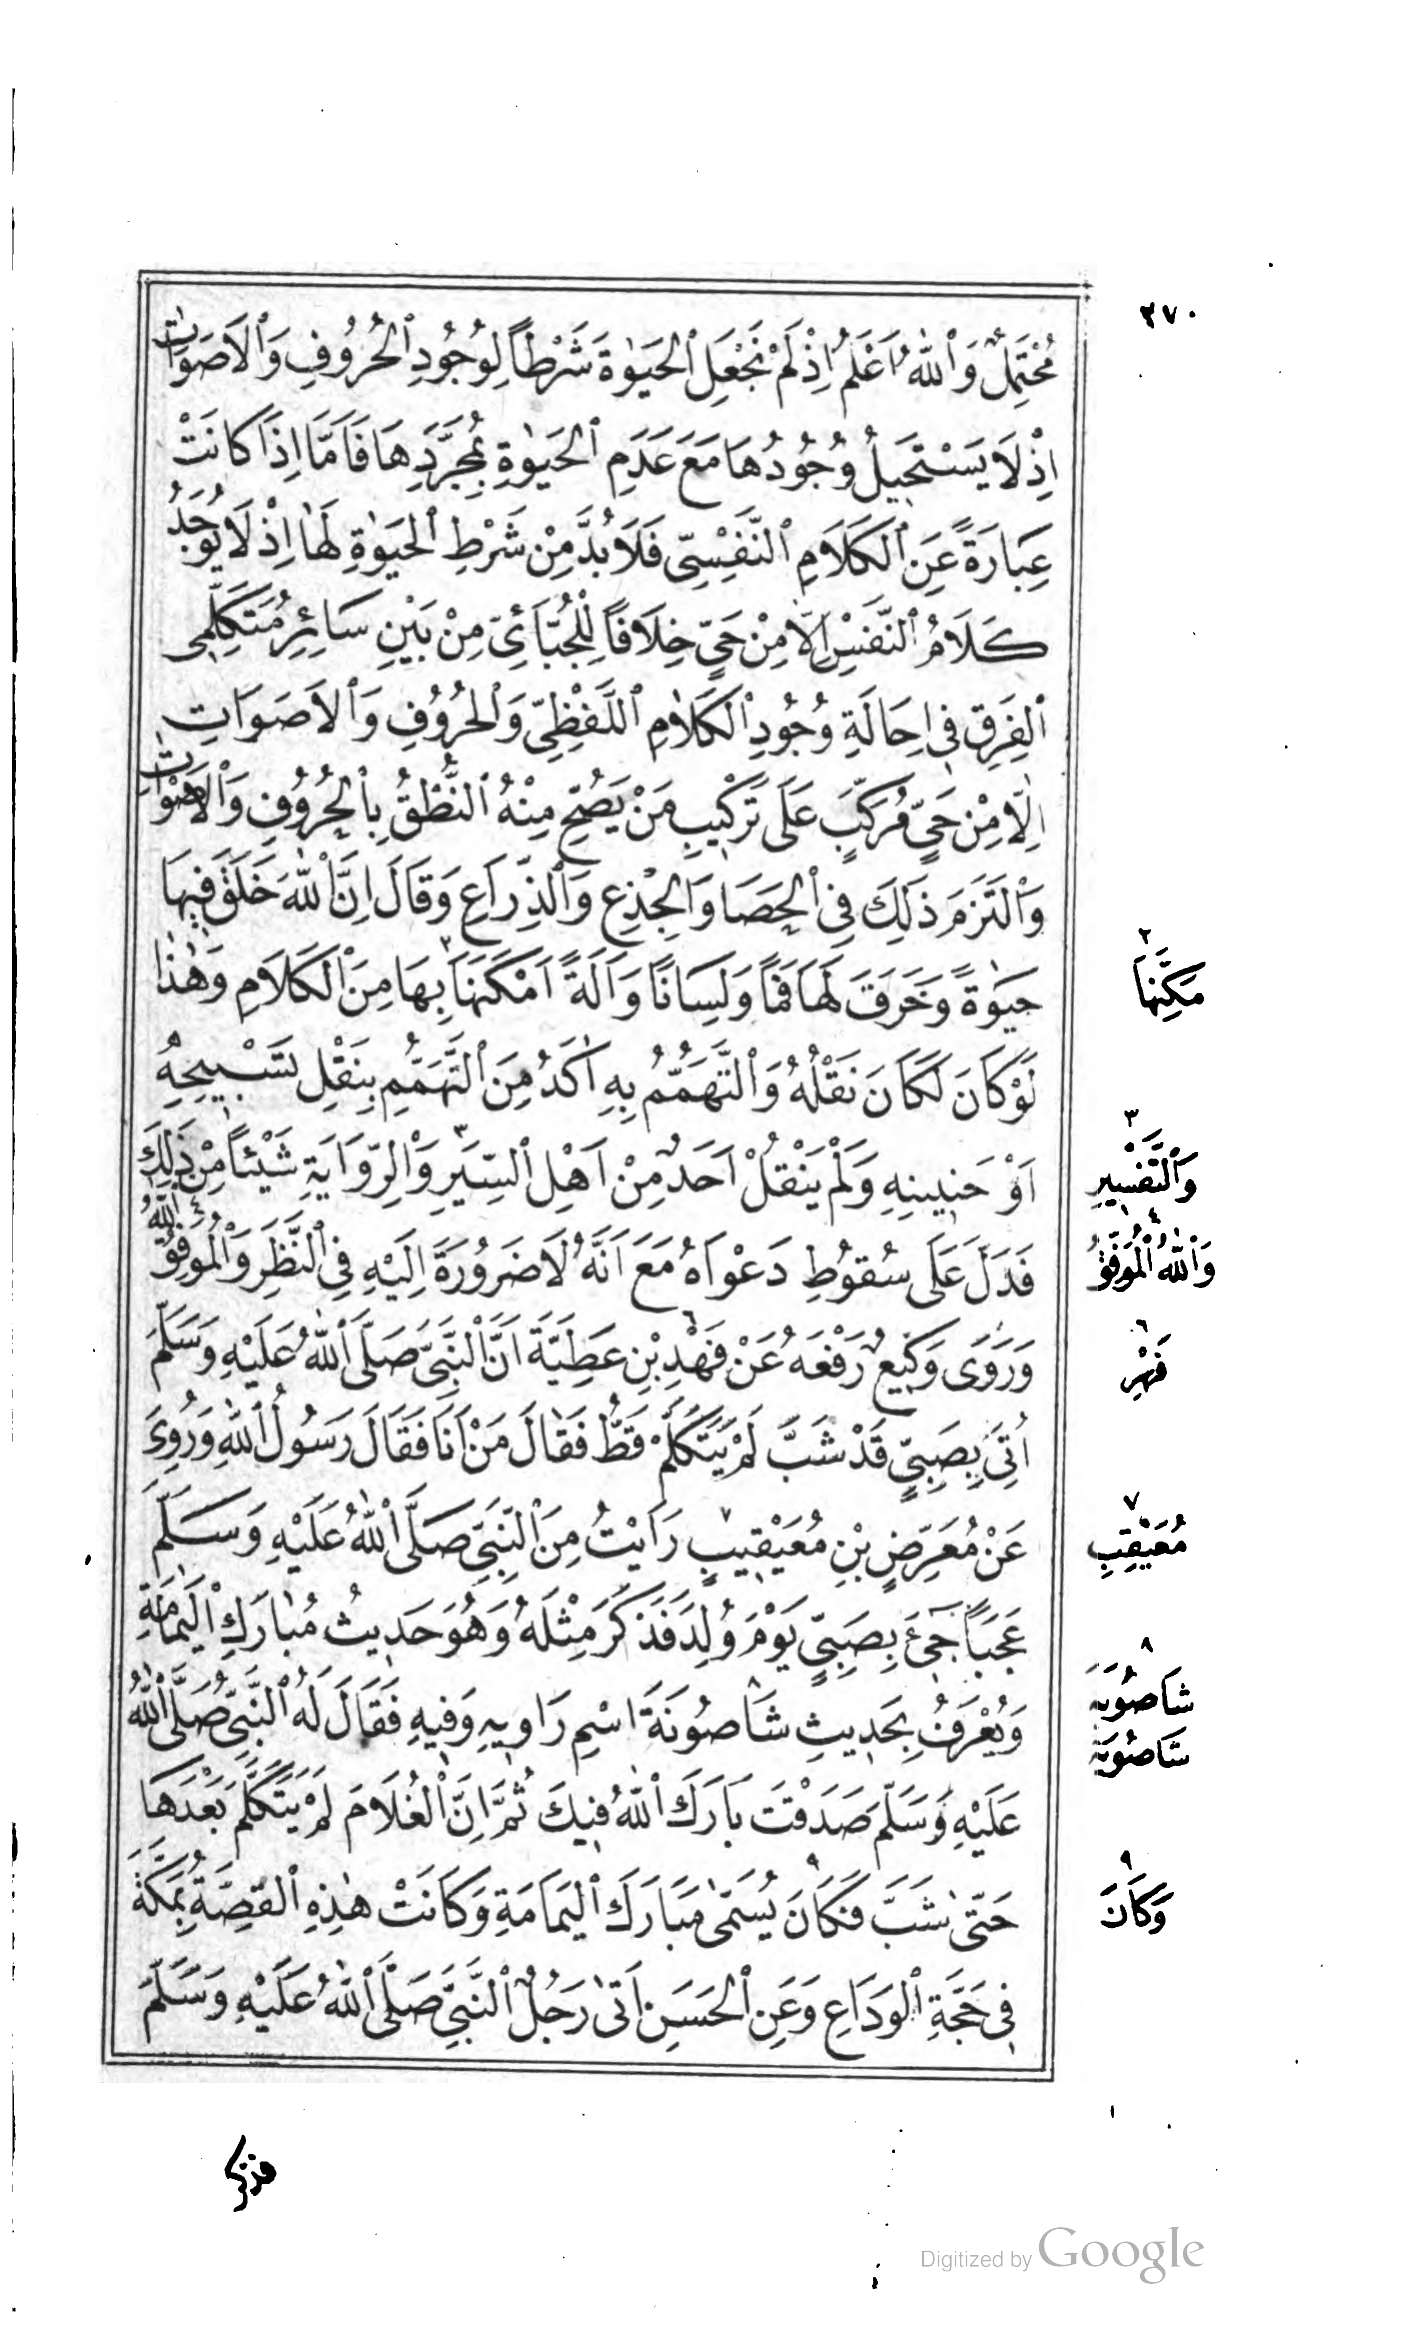 ٣٧٠
مُحْتَمَلٌ وَٱللّٰهُ اَعْلَمُ اِذْ لَمْ نَجْعَلِ ٱلْحَيٰوةَ شَرْطاً لِوُجُودِ ٱلْحُرُوفِ وَٱلْاَصْوَاتِ
اِذْ لَا يَسْتَحِيلُ وُجُودُهَا مَعَ عَدَمِ ٱلْحَيٰوةِ بِمُجَرَّدِهَا فَاَمَّا اِذَا كَانَتْ
عِبَارَةً عَنِ ٱلْكَلَامِ ٱلنَّفْسِيِّ فَلَا بُدَّ مِنْ شَرْطِ ٱلْحَيٰوةِ لَهَا اِذْ لَا يُوجَدُ
كَلَامُ ٱلنَّفْسِ اِلَّا مِنْ حَيٍّ خِلَافاً لِلْجُبَّائِيِّ مِنْ بَيْنِ سَائِرِ مُتَكَلِّمِي
ٱلْفِرَقِ فِي اِحَالَةِ وُجُودِ ٱلْكَلَامِ ٱللَّفْظِيِّ وَٱلْحُرُوفِ وَٱلْاَصْوَاتِ
اِلَّا مِنْ حَيٍّ مُرَكَّبٍ عَلَى تَرْكِيبِ مَنْ يَصِحُّ مِنْهُ ٱلنُّطْقُ بِٱلْحُرُوفِ وَٱلْاَصْوَاتِ
وَٱلْتَزَمَ ذَلِكَ فِي ٱلْحَصَا وَٱلْجِذْعِ وَٱلذِّرَاعِ وَقَالَ اِنَّ ٱللّٰهَ خَلَقَ فِيهَا
حَيٰوةً وَخَرَقَ لَهَا فَمًا وَلِسَانًا وَآلَةً اَمْكَنَهَا٢ بِهَا مِنَ ٱلْكَلَامِ وَهٰذَا
لَوْ كَانَ لَكَانَ نَقْلُهُ وَٱلتَّهَمُّمُ بِهِ آكَدُ مِنَ ٱلتَّهَمُّمِ بِنَقْلِ تَسْبِيحِهِ
اَوْ حَنِينِهِ وَلَمْ يَنْقُلْ اَحَدٌ مِنْ اَهْلِ ٱلسِّيَرِ٣ وَٱلرِّوَايَةِ شَيْئاً مِنْ ذَلِكَ
فَدَلَّ عَلَى سُقُوطِ دَعْوَاهُ مَعَ اَنَّهُ لَا ضَرُورَةَ اِلَيْهِ فِي ٱلنَّظَرِ وَٱلْمُوَفِّقُ٤ ٱللّٰهُ
وَرَوَى وَكِيعٌ رَفَعَهُ عَنْ فَهْدِ٦ بْنِ عَطِيَّةَ اَنَّ ٱلنَّبِيَّ صَلَّى ٱللّٰهُ عَلَيْهِ وَسَلَّمَ
اُتِيَ بِصَبِيٍّ قَدْ شَبَّ لَمْ يَتَكَلَّمْ قَطُّ فَقَالَ مَنْ اَنَا فَقَالَ رَسُولُ ٱللّٰهِ وَرُوِيَ
عَنْ مُعَرِّضِ بْنِ مُعَيْقِيبٍ٧ رَاَيْتُ مِنَ ٱلنَّبِيِّ صَلَّى ٱللّٰهُ عَلَيْهِ وَسَلَّمَ
عَجَباً جِيءَ بِصَبِيٍّ يَوْمَ وُلِدَ فَذَكَرَ مِثْلَهُ وَهُوَ حَدِيثُ مُبَارَكِ ٱلْيَمَامَةِ
وَيُعْرَفُ بِحَدِيثِ شَاصُونَةَ٨ اسْمِ رَاوِيهِ وَفِيهِ فَقَالَ لَهُ ٱلنَّبِيُّ صَلَّى ٱللّٰهُ
عَلَيْهِ وَسَلَّمَ صَدَقْتَ بَارَكَ ٱللّٰهُ فِيكَ ثُمَّ اِنَّ ٱلْغُلَامَ لَمْ يَتَكَلَّمْ بَعْدَهَا
حَتَّى شَبَّ فَكَانَ٩ يُسَمَّى مُبَارَكَ ٱلْيَمَامَةِ وَكَانَتْ هٰذِهِ ٱلْقِصَّةُ بِمَكَّةَ
فِي حَجَّةِ ٱلْوَدَاعِ وَعَنِ ٱلْحَسَنِ اَتَى رَجُلٌ ٱلنَّبِيَّ صَلَّى ٱللّٰهُ عَلَيْهِ وَسَلَّمَ
٢
مَكَّنَهَا
٣
وَٱلتَّفْسِيرِ
٤
وَٱللّٰهُ ٱلْمُوَفِّقُ
٦
فَهْرِ
٧
مُعَيْقِبِ
٨
شَاصُوَيَهِ
شَاصُونَةَ
٩
وَكَانَ
فذكر
Digitized by Google